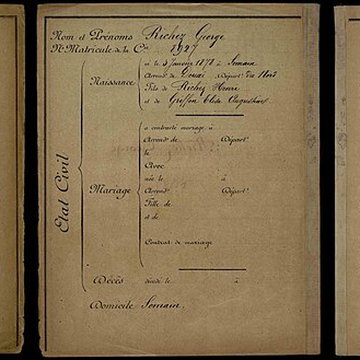 Nom et Prénoms Richez George
N° Matricule de la Cie 1927
Etat Civil
Naissance
né le 3 Janvier 1878 à Somain
Arrondt de Douai Départt du Nord
Fils de Richez Henri
et de Griffon
Mariage
a contracté mariage à
Arrondt de Départt
le
Avec
née le à
Arrondt Départt
Fille de
et de
Contrat de mariage
Décès décédé le à
Domicile Somain